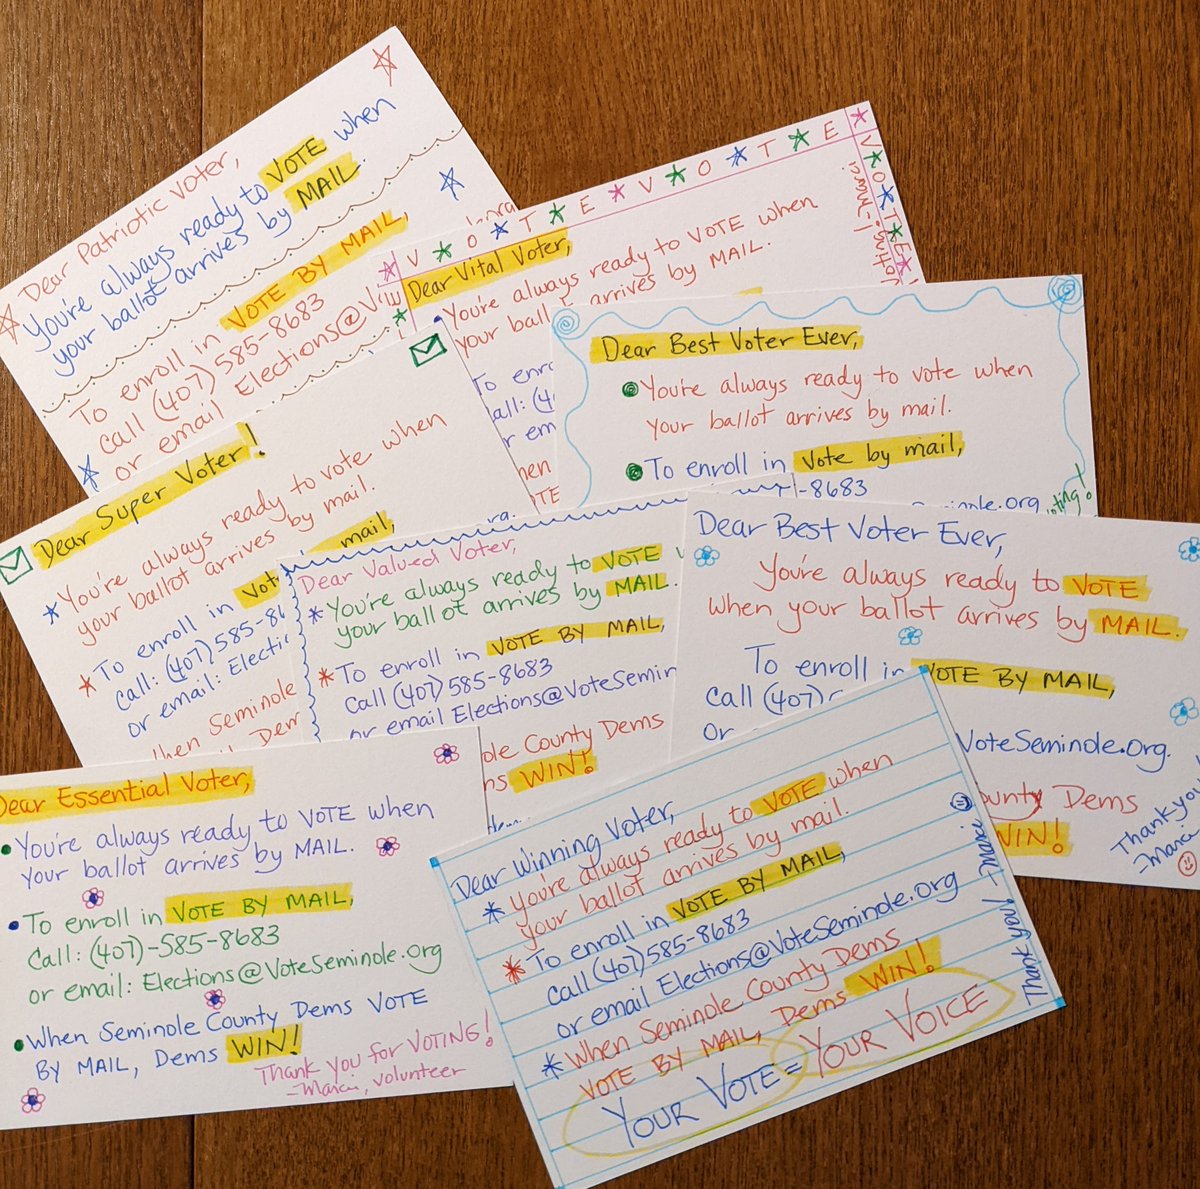 Dear Patriotic Voter,
You're always ready to VOTE when
your ballot arrives by MAIL.
To enroll in VOTE BY MAIL,
call (407) 585-8683
or email Elections@
V O T E V O T E
V O T E
Dear Vital Voter,
You're always ready to VOTE when
your ballot arrives by MAIL.
To
call: (4
or em
Dear Best Voter Ever,
You're always ready to vote when
your ballot arrives by mail.
To enroll in Vote by mail,
-8683
.org
Dear Super Voter!
You're always ready to vote when
your ballot arrives by mail.
To enroll in mail,
Call: (407) 585-8
or email:
Seminole
Dear Valued Voter,
You're always ready to VOTE
your ballot arrives by MAIL.
To enroll in VOTE BY MAIL,
Call (407) 585-8683
or email Elections@VoteSemin
County Dems
WIN!
Dear Best Voter Ever,
You're always ready to VOTE
when your ballot arrives by MAIL.
To enroll in VOTE BY MAIL,
Call (407)
or VoteSeminole.org.
County Dems
WIN!
Thank you
-Marci
Dear Essential Voter,
You're always ready to VOTE when
your ballot arrives by MAIL.
To enroll in VOTE BY MAIL,
Call: (407)-585-8683
or email: Elections@VoteSeminole.org
When Seminole County Dems VOTE
BY MAIL, Dems WIN!
Thank you for VOTING!
-Marci, volunteer
Dear Winning Voter,
You're always ready to VOTE when
your ballot arrives by mail.
To enroll in VOTE BY MAIL,
Call (407) 585-8683
or email Elections@VoteSeminole.org
When Seminole County Dems
VOTE BY MAIL, Dems WIN!
YOUR VOTE = YOUR VOICE
Thank you! -Marci